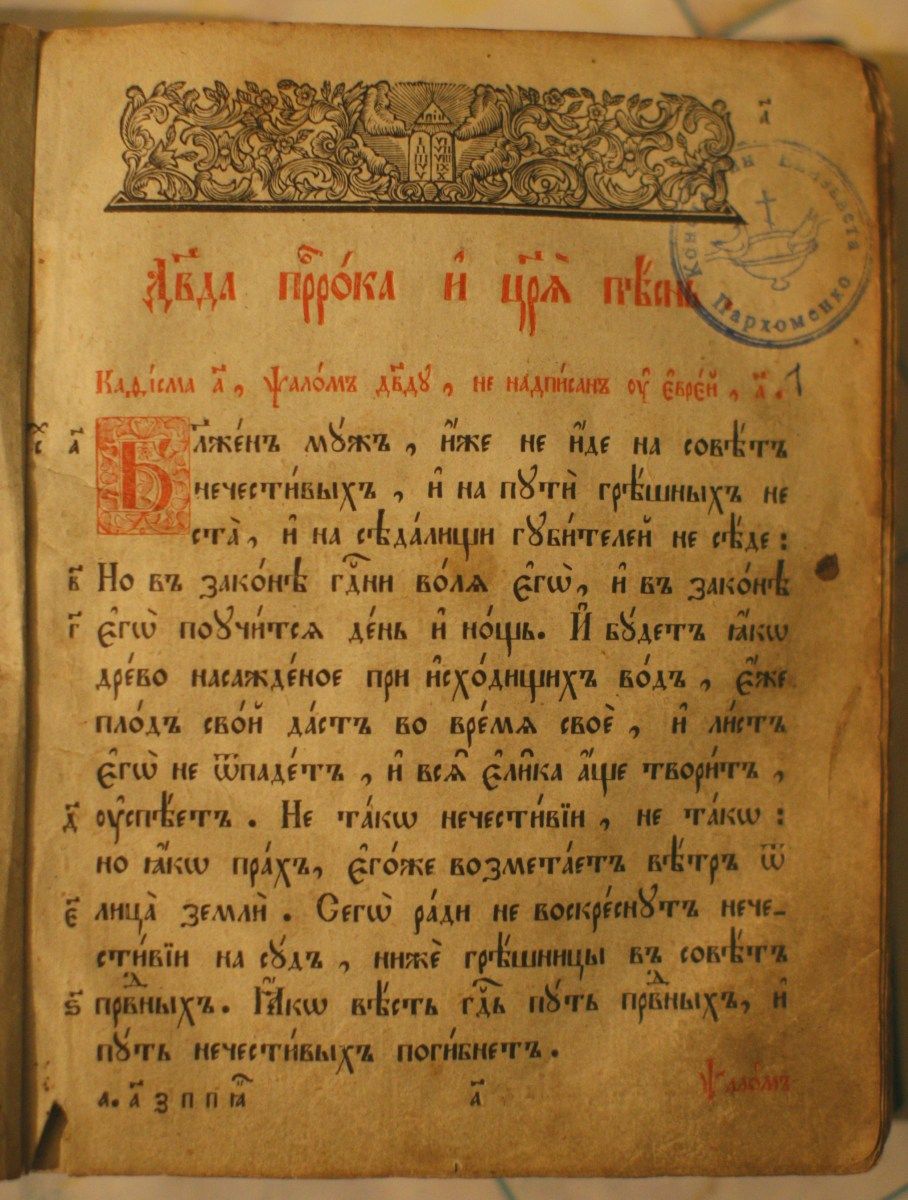 а҃
Дв҃да прⷪ҇ро́ка и҆ цр҃ѧ̀ пѣ́снь
Каѳі́сма а҃, ѱало́мъ дв҃ду, не надпи́санъ ᲂу҆ є҆вре́й, а҃. 1
а҃ Бл҃же́нъ мꙋ́жъ, и҆́же не и҆́де на совѣ́тъ
нечести́выхъ, и҆ на пꙋтѝ грѣ́шныхъ не
ста̀, и҆ на сѣда́лищи гꙋби́телей не сѣ́де:
в҃ Но въ зако́нѣ гдⷭ҇ни во́лѧ є҆гѡ̀, и҆ въ зако́нѣ
г҃ є҆гѡ̀ поᲂучи́тсѧ де́нь и҆ но́щь. И҆ бꙋ́детъ ꙗ҆́кѡ
дре́во насажде́ное при и҆схо́дищихъ во́дъ, є҆́же
пло́дъ сво́й да́стъ во вре́мѧ своѐ, и҆ ли́стъ
є҆гѡ̀ не ѿпаде́тъ, и҆ всѧ̑ є҆ли̑ка а҆́ще твори́тъ,
д҃ ᲂу҆спѣ́етъ. Не та́кѡ нечести́вїи, не та́кѡ:
но ꙗ҆́кѡ пра́хъ, є҆го́же возмета́етъ вѣ́тръ ѿ
є҃ лица̀ землѝ. Сегѡ̀ ра́ди не воскре́снꙋтъ нече-
сти́вїи на сꙋ́дъ, нижѐ грѣ́шницы въ совѣ́тъ
ѕ҃ првⷣныхъ. Ꙗ҆́кѡ вѣ́сть гдⷭ҇ь пꙋ́ть првⷣныхъ, и҆
пꙋ́ть нечести́выхъ поги́бнетъ.
Ѱало́мъ
а҃
Пархоменко